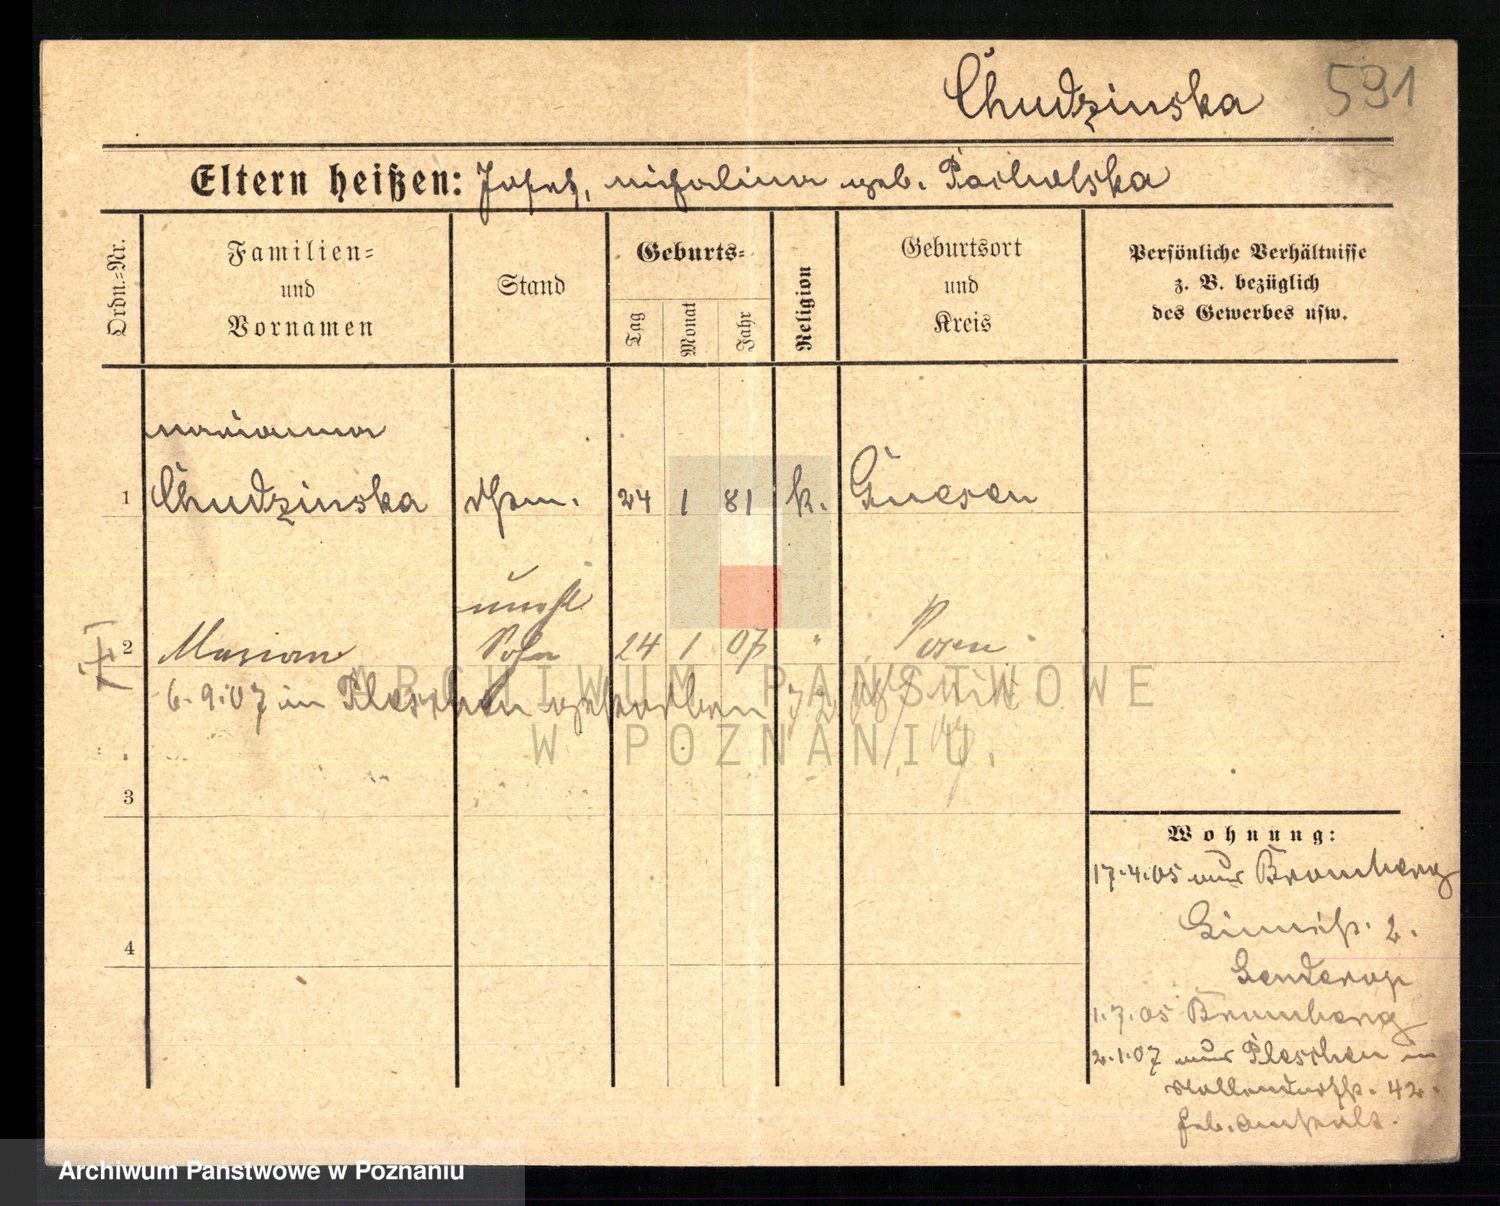 Chudzinska
591
Eltern heißen: Josef, Michalina geb. Pacholska
Ordn.-Nr.
Familien-
und
Vornamen
Stand
Geburts-
Tag
Monat
Jahr
Religion
Geburtsort
und
Kreis
Persönliche Verhältnisse
z. B. bezüglich
des Gewerbes usw.
Marianna
1 Chudzinska 24 1 81 k. Gnesen
unehl
2 Marian Sohn 24 1 07 " Posen
6.9.07 in Pleschen gestorben
3
4
Wohnung:
17.4.05 aus Bromberg
2.
Gendarm
1.7.05 Bromberg
2.1.07 aus Pleschen in
42.
ARCHIWUM PAŃSTWOWE
W POZNANIU
Archiwum Państwowe w Poznaniu